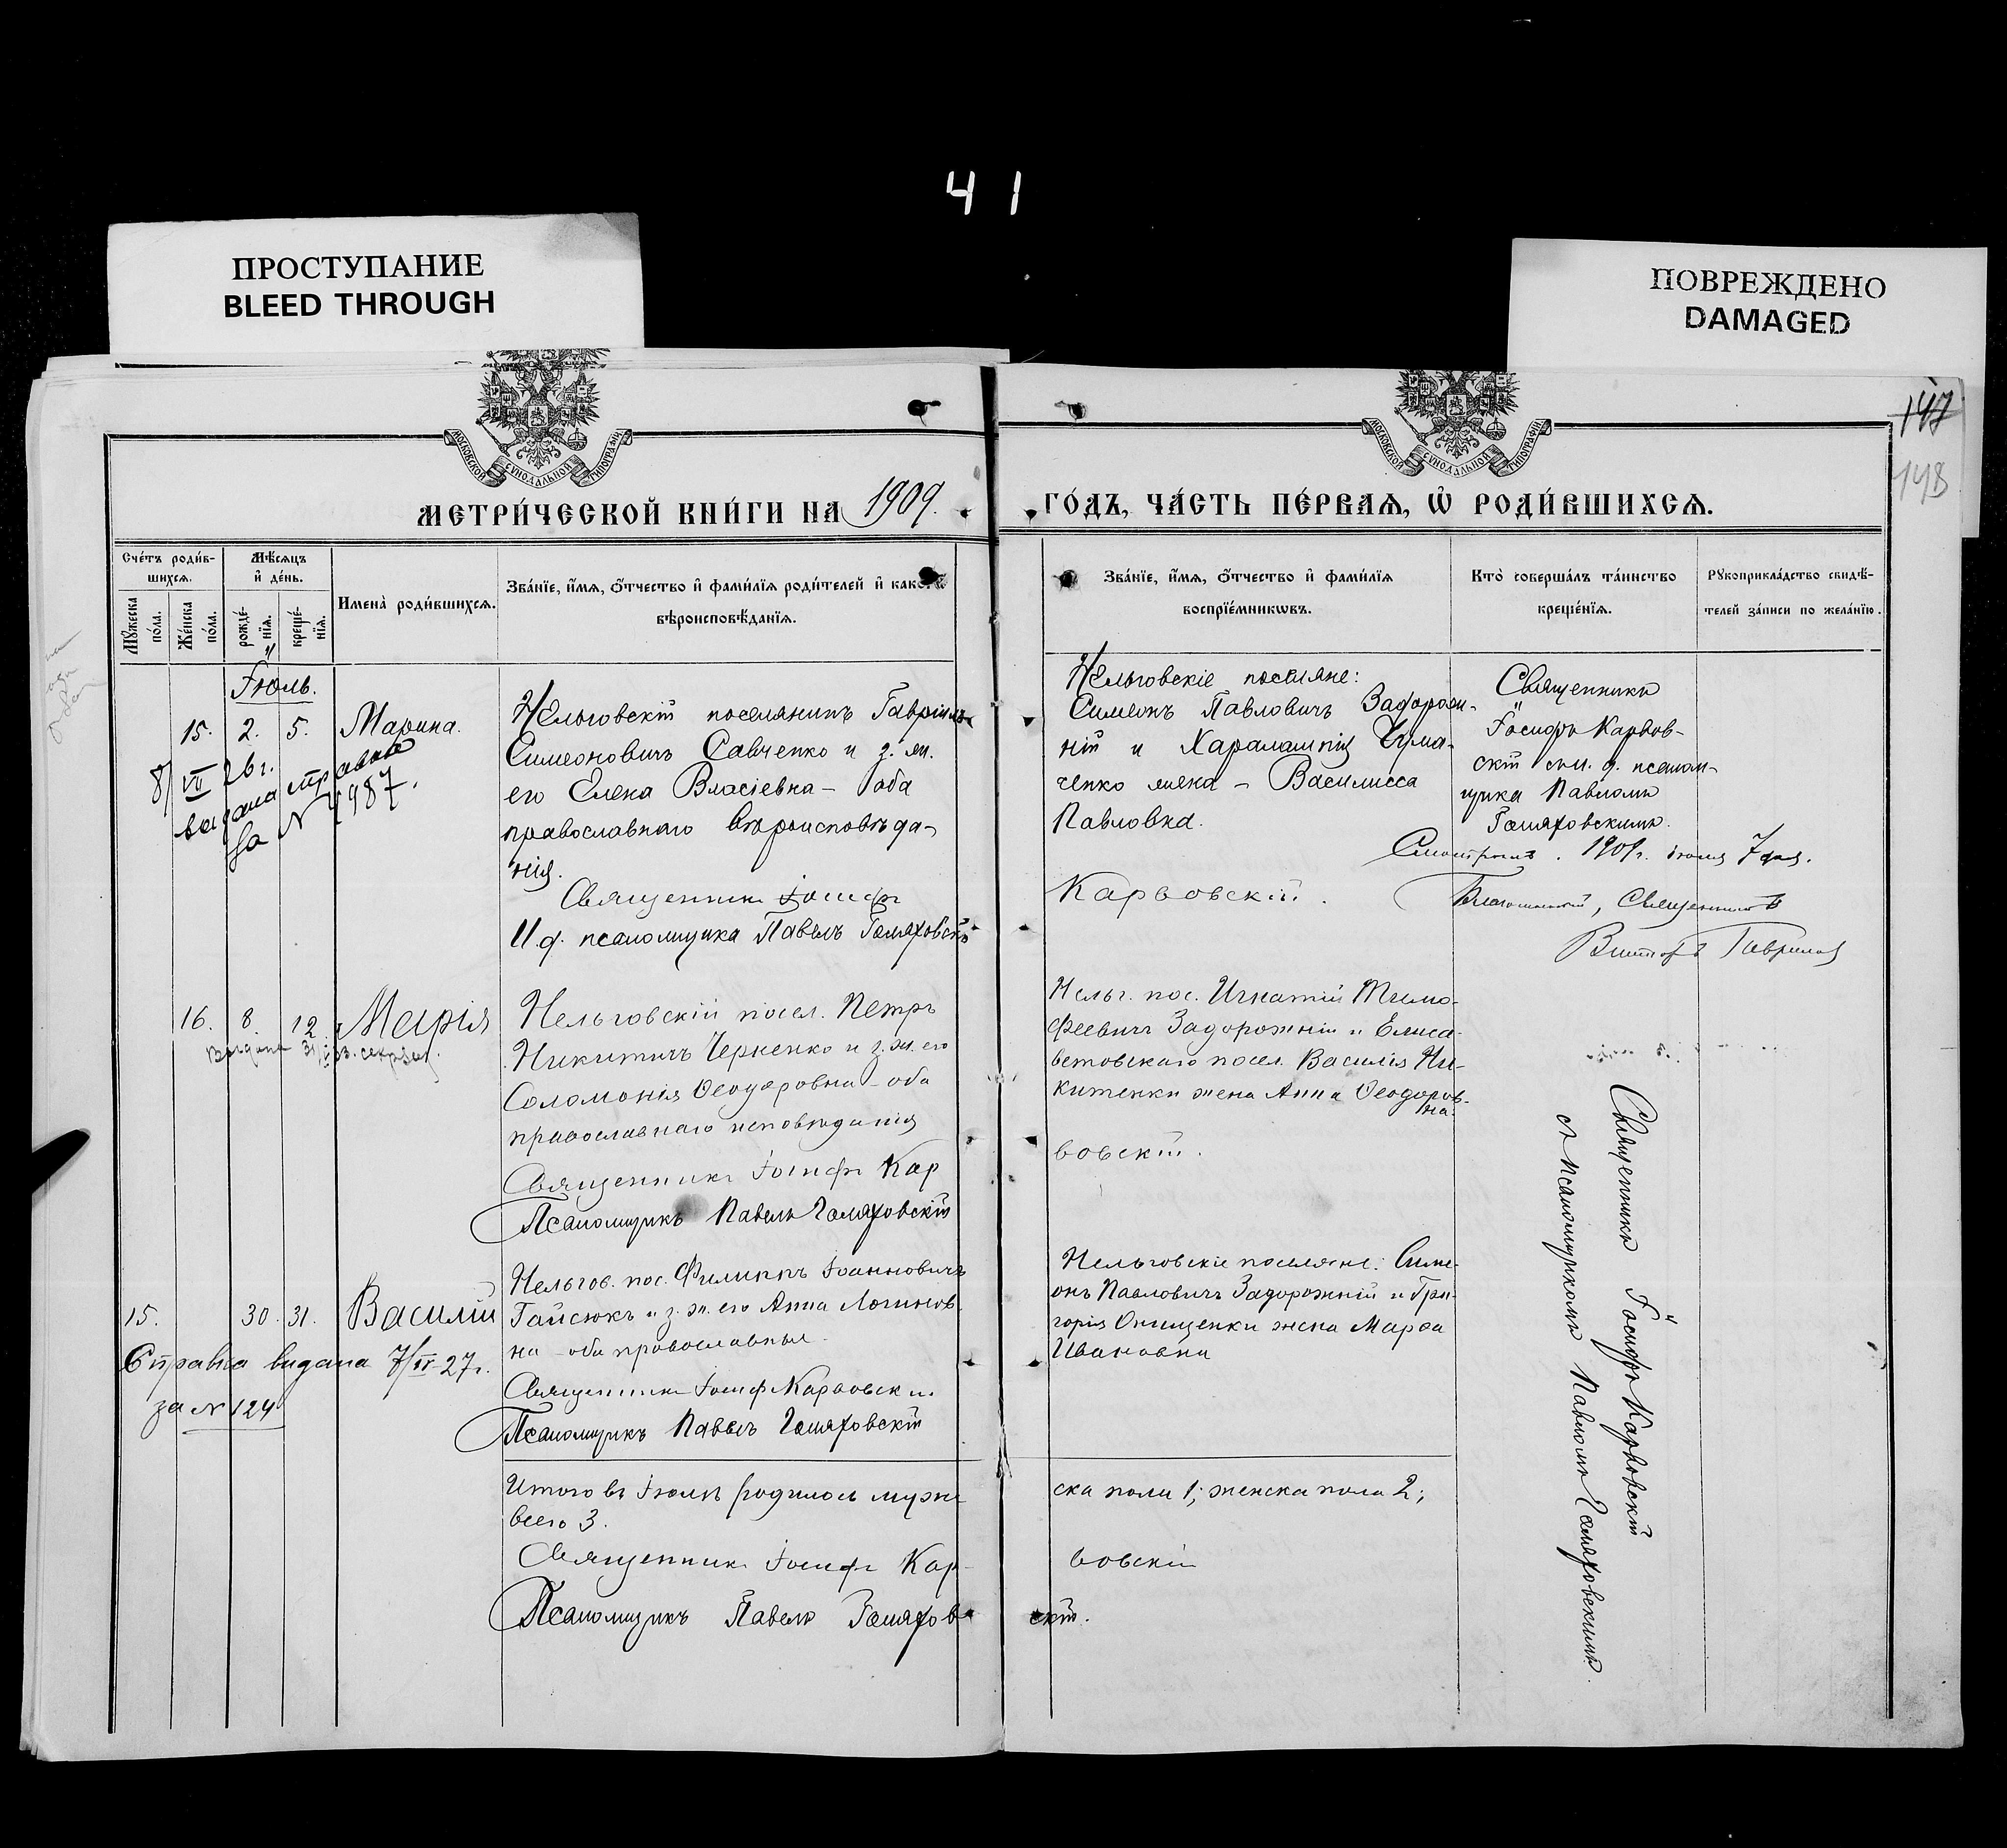 41
ПРОСТУПАНИЕ
BLEED THROUGH
ПОВРЕЖДЕНО
DAMAGED
147
148
МОСКОВСКОЙ СѴНОДАЛЬНОЙ ТИПОГРАФІИ
МОСКОВСКОЙ СѴНОДАЛЬНОЙ ТИПОГРАФІИ
МЕТРИ́ЧЕСКОЙ КНИ́ГИ НА 1909.
ГО́ДЪ, ЧА́СТЬ ПЕ́РВАѦ, Ѡ҆ РОДИ́ВШИХСѦ.
Сче́тъ роди́в-
шихсѧ.
Мѣ́сѧцъ
и҆ де́нь.
Мꙋ́жеска
по́ла.
Же́нска
по́ла.
рожде́-
нїѧ.
креще́-
нїѧ.
Имена̀ роди́вшихсѧ.
Зва́нїе, и҆́мѧ, ѻ҆́тчество и҆ фами́лїѧ роди́телей и҆ како́гѡ
вѣроисповѣ́данїѧ.
Зва́нїе, и҆́мѧ, ѻ҆́тчество и҆ фами́лїѧ
воспрїе́мникѡвъ.
Кто̀ соверша́лъ та́инство
креще́нїѧ.
Рꙋкоприкла́дство свидѣ́-
телей за́писи по жела́нїю.
Іюль.
15. 2. 5. Марина.
8/VII 26 г.
видана справка
за N 1987.
Нельговскій поселянинъ Гавріилъ
Симеоновичъ Савченко и з. ж.
его Елена Власіевна – оба
православнаго вѣроисповѣда-
нія.
Священникъ Іосифъ
И.д. псаломщика Павелъ Голяховскій
Нельговскіе поселяне:
Симеонъ Павловичъ Задорож-
ній и Харалампія Чума-
ченко жена – Василисса
Павловна.
Карвовскій.
Священникъ
Іосифъ Карвов-
скій съ и. д. псалом-
щика Павломъ
Голяховскимъ.
Смотрѣлъ. 1909 г. іюля 7 дня.
Благочинный, Священникъ
Викторъ Гавриловъ
16. 8. 12. Марія
Нельговскій посел. Петръ
Никитичъ Черненко и з. ж. его
Соломонія Ѳеодоровна – оба
православнаго исповѣданія
Священникъ Іосифъ Кар
Псаломщикъ Павелъ Голяховскій
Нельг. пос. Игнатій Тимо-
феевичъ Задорожній и Елиса-
ветовскаго посел. Василія Ни-
китенки жена Анна Ѳеодоров-
на.
вовскій.
15. 30. 31. Василій
Справка видана 7/IV 27 г.
за N 124
Нельгов. пос. Филиппъ Іоанновичъ
Гайсюкъ и з. ж. его Анна Логинов-
на – оба православныя.
Священникъ Іосифъ Карвовскій.
Псаломщикъ Павелъ Голяховскій
Нельговскіе поселяне: Симе-
онъ Павловичъ Задорожній и Гри-
горія Онищенки жена Марѳа
Ивановна
Священникъ Іосифъ Карвовскій
съ псаломщикомъ Павломъ Голяховскимъ.
Итого въ Іюлѣ родилось муже
ска пола 1; женска пола 2;
всего 3.
Священникъ Іосифъ Кар-
вовскій
Псаломщикъ Павелъ Голяхов-
скій.